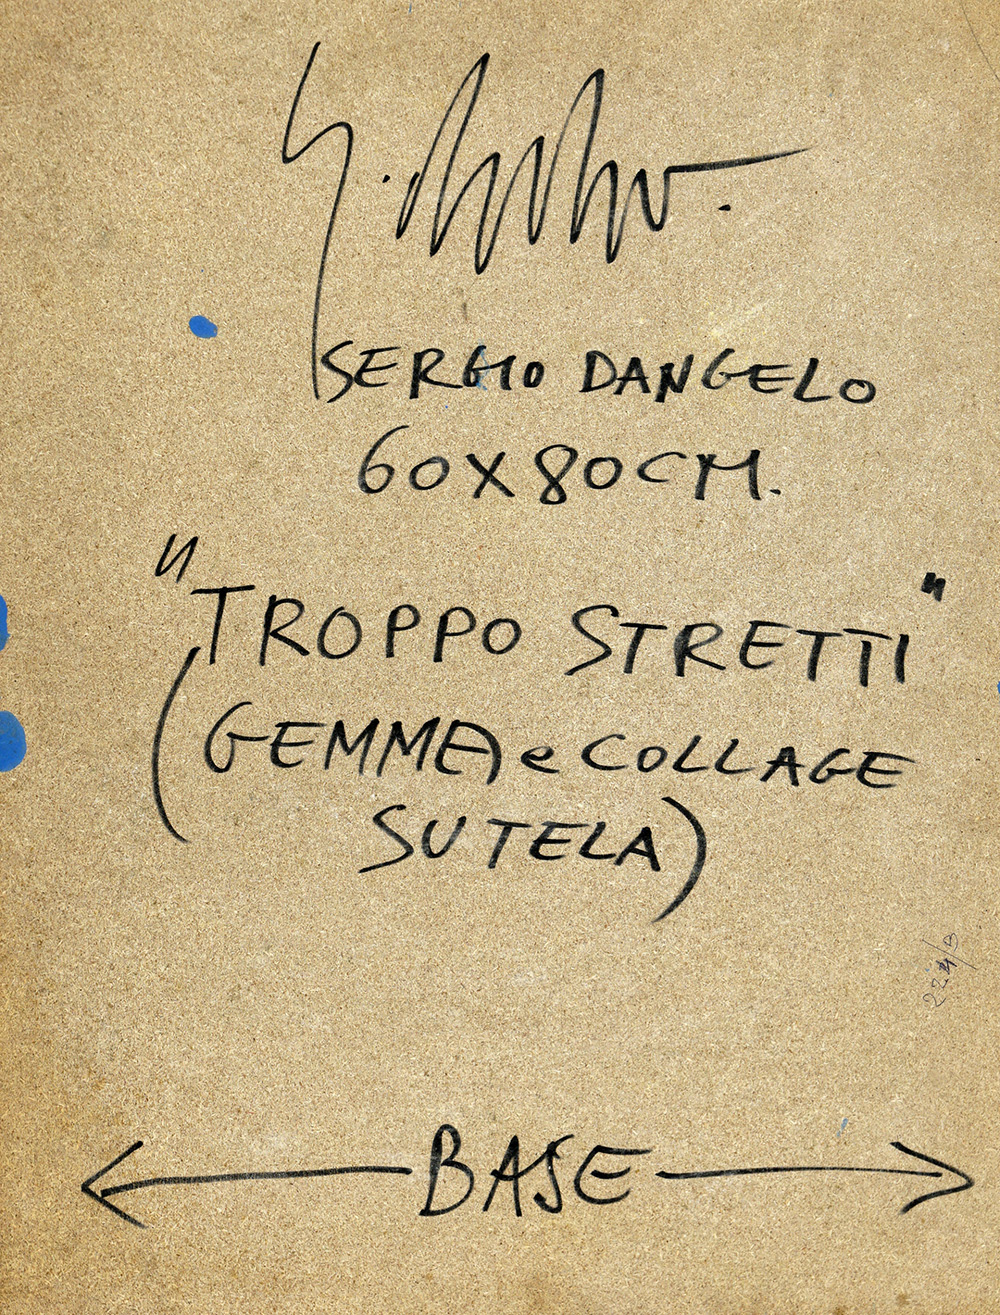 SERGIO DANGELO
60X80CM.
"TROPPO STRETTI"
(GEMMA e COLLAGE
SU TELA)
BASE